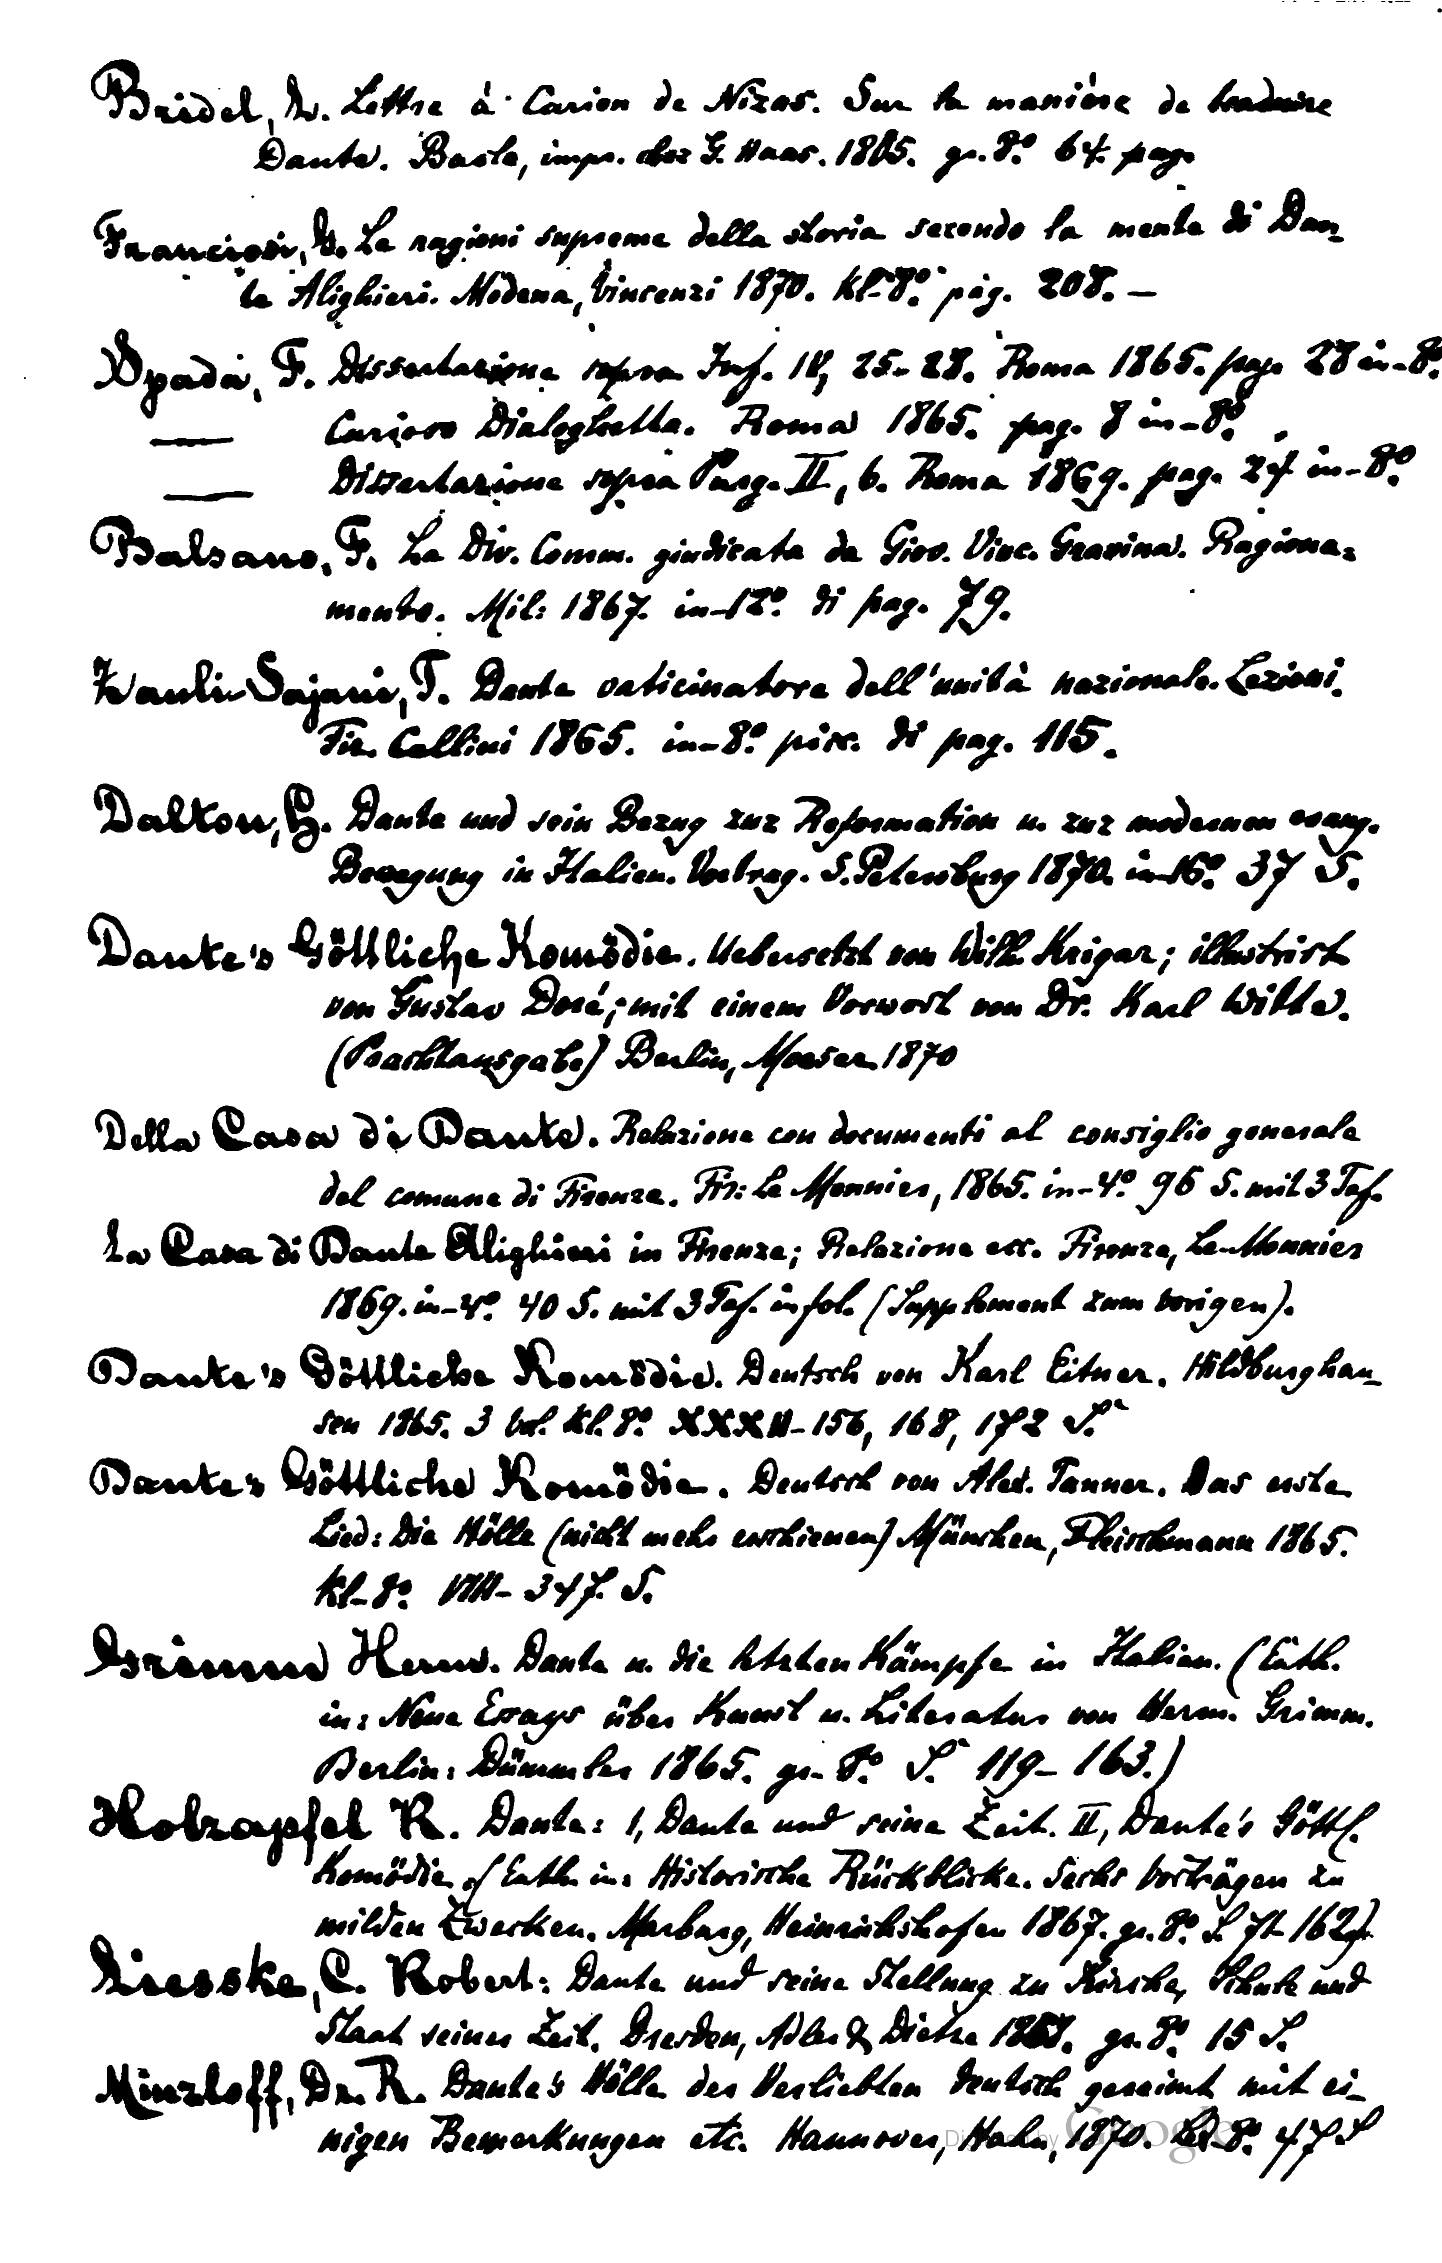 Bridel, L. Lettre à Carion de Nizas. Sur la manière de traduire
Dante. Basle, impr. chez G. Haas. 1805. gr. 8.° 64. pag.
Franciosi, G. Le ragioni supreme della storia secondo la mente di Dan-
te Alighieri. Modena, Vincenzi 1870. kl-8.° pag. 208. —
Spada, F. Dissertazione sopra Inf. IV, 25-28. Roma 1865. pag. 28 in-8.°
— Curioso Dialoghetto. Roma 1865. pag. 8 in-8.°
— Dissertazione sopra Purg. II, 6. Roma 1869. pag. 24 in-8.°
Balsano, F. La Div. Comm. giudicata da Giov. Vinc. Gravina. Ragiona=
mento. Mil: 1867. in-12.° di pag. 79.
Zauli-Sajani, T. Dante vaticinatore dell'unità nazionale. Lezioni.
Fir. Cellini 1865. in-8.° picc. di pag. 115.
Dalton, H. Dante und sein Bezug zur Reformation u. zur modernen evang.
Bewegung in Italien. Vortrag. S. Petersburg 1870. in-16.° 37 S.
Dante's Göttliche Komödie. Uebersetzt von Wilh. Krigar; illustrirt
von Gustav Doré; mit einem Vorwort von Dr. Karl Witte.
(Prachtausgabe) Berlin, Moeser 1870
Della Casa di Dante. Relazione con documenti al consiglio generale
del comune di Firenze. Fir: Le Monnier, 1865. in-4.° 96 S. mit 3 Taf.
La Casa di Dante Alighieri in Firenze; Relazione ecc. Firenze, Le-Monnier
1869. in-4.° 40 S. mit 3 Taf. in fol. (Supplement zum vorigen).
Dante's Göttliche Komödie. Deutsch von Karl Eitner. Hildburghau-
sen 1865. 3 bd. kl. 8.° XXXII-156, 168, 172 S.
Dante's Göttliche Komödie. Deutsch von Alex. Tanner. Das erste
Lied: Die Hölle (nicht mehr erschienen) München, Fleischmann 1865.
kl-8.° VIII- 347. S.
Grimm Herm. Dante u. die letzten Kämpfe in Italien. (Enth.
in: Neue Essays über Kunst u. Literatur von Herm. Grimm.
Berlin: Dümmler 1865. gr. 8.° S. 119-163.)
Holzapfel R. Dante: I, Dante und seine Zeit. II, Dante's Göttl.
Komödie. (Enth. in: Historische Rückblicke. Sechs Vorträgen zu
milden Zwecken. Marburg, Heinrichshofen 1867. gr. 8.° S. 71-162).
Liesske, C. Robert: Dante und seine Stellung zu Kirche, Schule und
Staat seiner Zeit. Dresden, Adler & Dietze gr. 8.° 15 S.
Minzloff, Dr. R. Dante's Hölle der Verliebten deutsch gereimt mit ei-
nigen Bemerkungen etc. Hannover, Hahn, 1870. 8.° 47 S
Digitized by Google